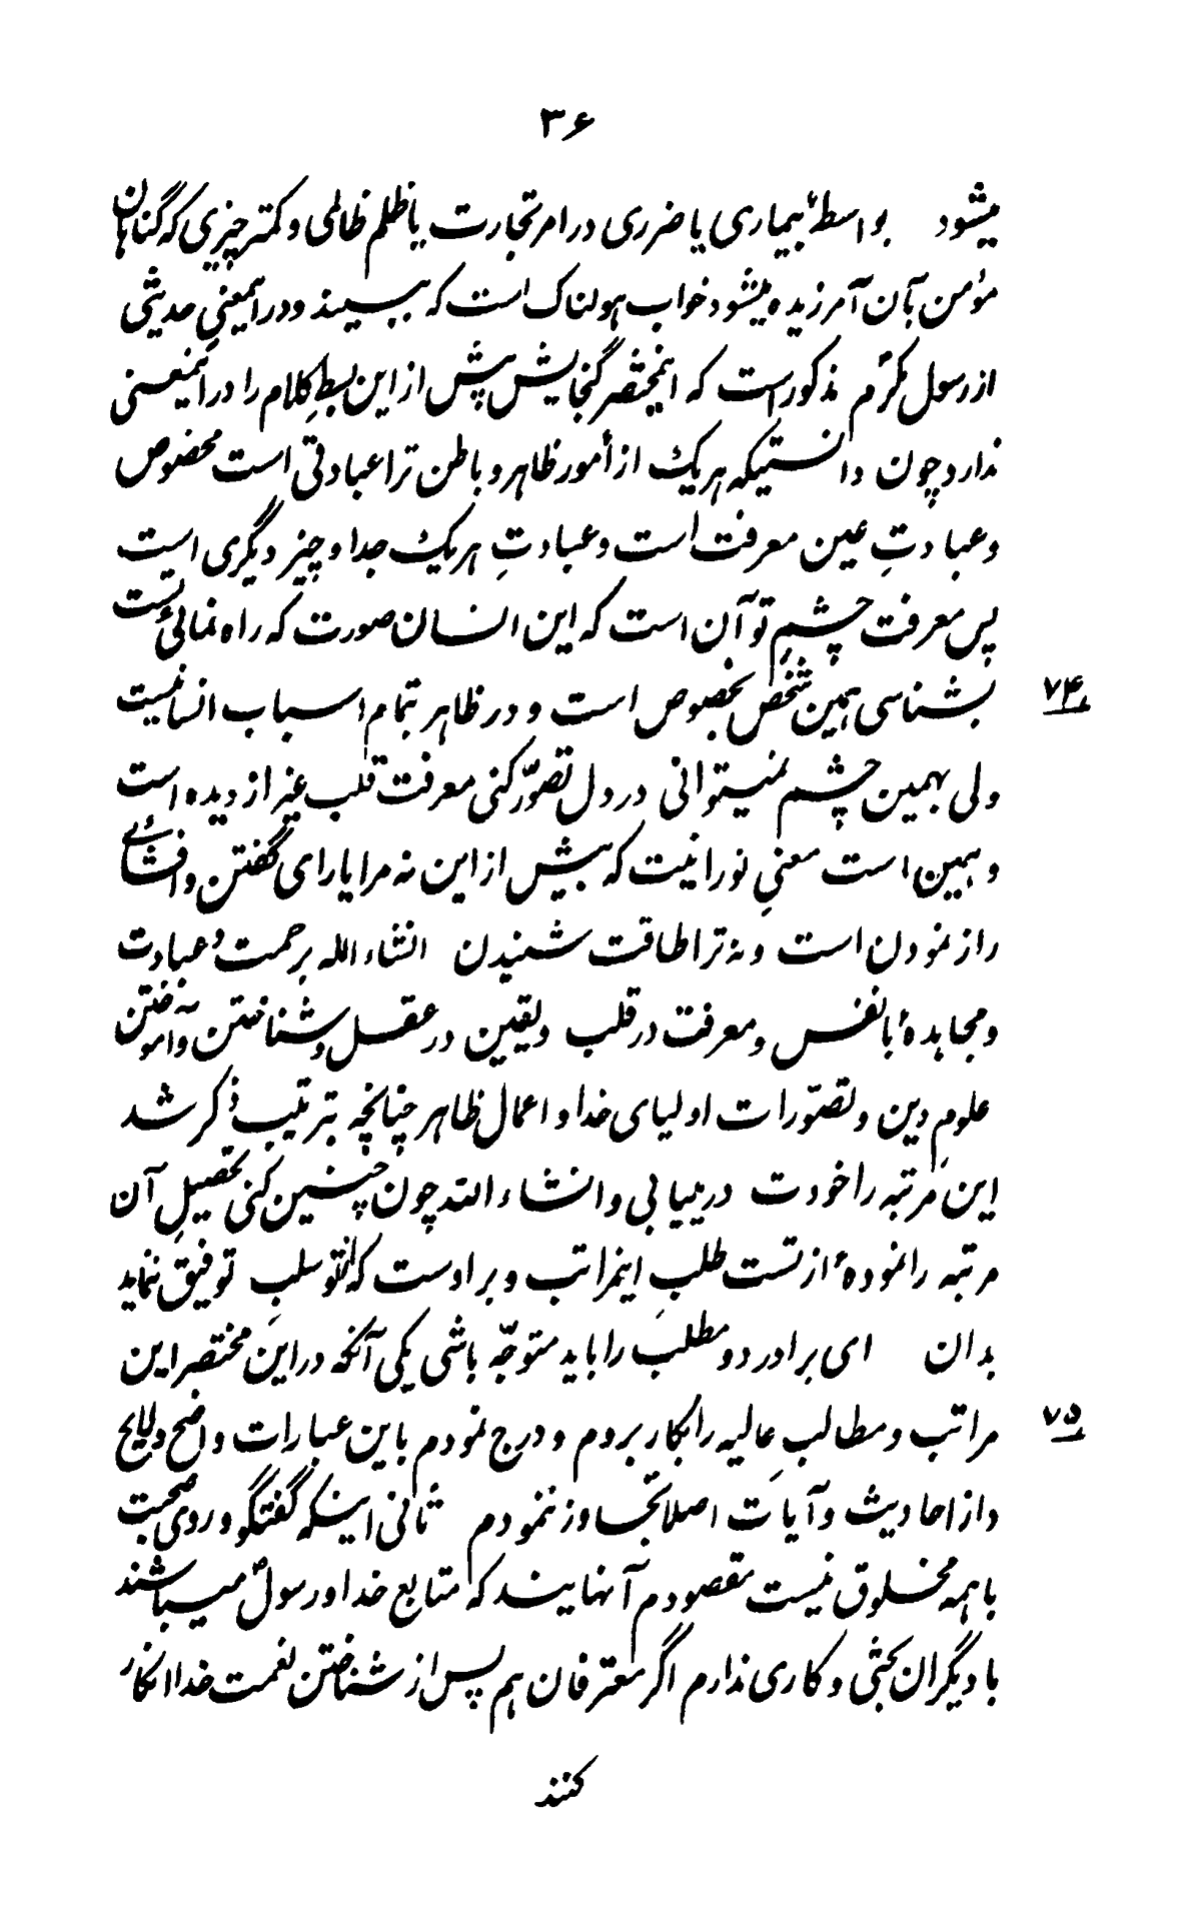 ۳۶
میشود بواسطهٔ بیماری یا ضرری در امر تجارت یا ظلم ظالمی و کمتر چیزی که گناهان
مؤمن بآن آمرزیده میشود خواب هولناک است که ببیند و در اینمعنیِ حدیثی
از رسول مکرّم مذکور است که اینمختصر گنجایش بیش از این بسطِ کلام را در اینمعنی
ندارد چون دانستیکه هریک از أمور ظاهر و باطن ترا عبادتی است مخصوص
و عبادتِ عین معرفت است و عبادتِ هریک جدا و چیز دیگری است
پس معرفت چشمِ تو آن است که این انسان صورت که راه نمائیٔ تست
بشناسی همین شخص بخصوص است و در ظاهر بتمام اسباب انسانیست ۷۴
ولی بهمین چشم نمیتوانی در دل تصوّر کنی معرفت قلب غیر از دیده است
و همین است معنیِ نورانیت که بیش از این نه مرا یارای گفتن و افشائے
راز نمودن است و نه ترا طاقت شنیدن انشاء الله برحمت و عبادت
و مجاهدهٔ با نفس و معرفت در قلب و یقین در عقل و شناختن و آموختن
علومِ دین و تصوّرات اولیای خدا و اعمال ظاهر چنانچه بترتیب ذکر شد
این مرتبه را خودت در مییابی و انشاء الله چون چنین کنی تحصیلِ آن
مرتبه را نمودهٔ از تست طلبِ اینمراتب و بر اوست که از تو سلبِ توفیق ننماید
بدان ای برادر دو مطلب را باید متوجّه باشی یکی آنکه در این مختصر این
مراتب و مطالبِ عالیه را بکار بردم و درج نمودم باین عبارات واضح و لایح ۷۵
و از احادیث و آیات اصلا تجاوز ننمودم ثانی اینکه گفتگو و روی صحبت
با همه مخلوق نیست مقصودم آنهایند که متابع خدا و رسولؐ میباشند
با دیگران بحثی و کاری ندارم اگر معترفان هم پس از شناختن نعمت خدا انکار
کنند